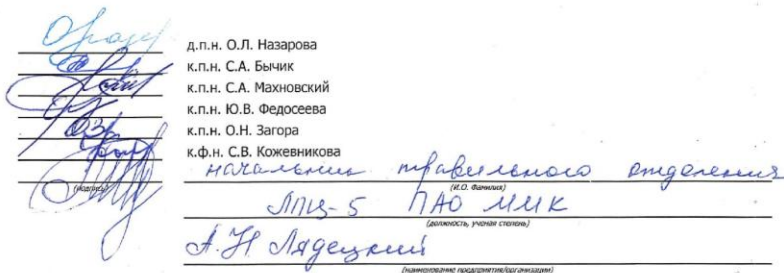 д.п.н. О.Л. Назарова
к.п.н. С.А. Бычик
к.п.н. С.А. Махновский
к.п.н. Ю.В. Федосеева
к.п.н. О.Н. Загора
к.ф.н. С.В. Кожевникова
начальник травильного отделения
(подпись) (И.О. Фамилия)
ЛПЦ-5 ПАО ММК
(должность, ученая степень)
А.Н Лядецкий
(наименование предприятия/организации)